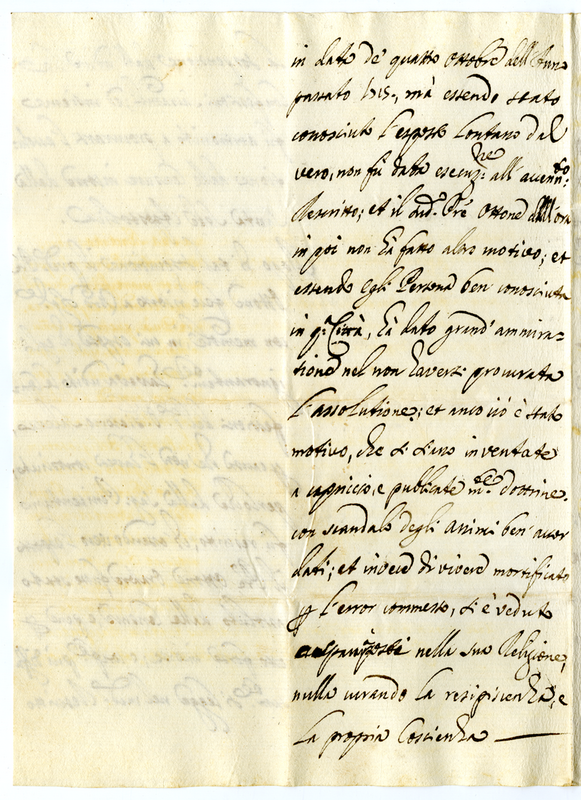 in data de quatto Ottobre dell'Anno
passato 1715, mà essendo stato
conosciuto l'esposto lontano dal
vero, non fù data esecuz:ne all'accenn:to
Rescritto; et il sud.º Pre Ottone dall'ora
in poi non hà fatto altro motivo; et
essendo egli Persona ben conosciuta
in q: Città, hà dato grand'ammira=
tione nel non haversi procurata
l'assolutione; et anco ciò è stato
motivo, che si siano inventate
a capriccio, e publicate m:te dottrine
con scandalo degli animi ben accor
dati; et invece di vivere mortificato
p l'error commesso, si è veduto
nella sua Religione,
nulla curando la resipiscenza, e
la propria Coscienza